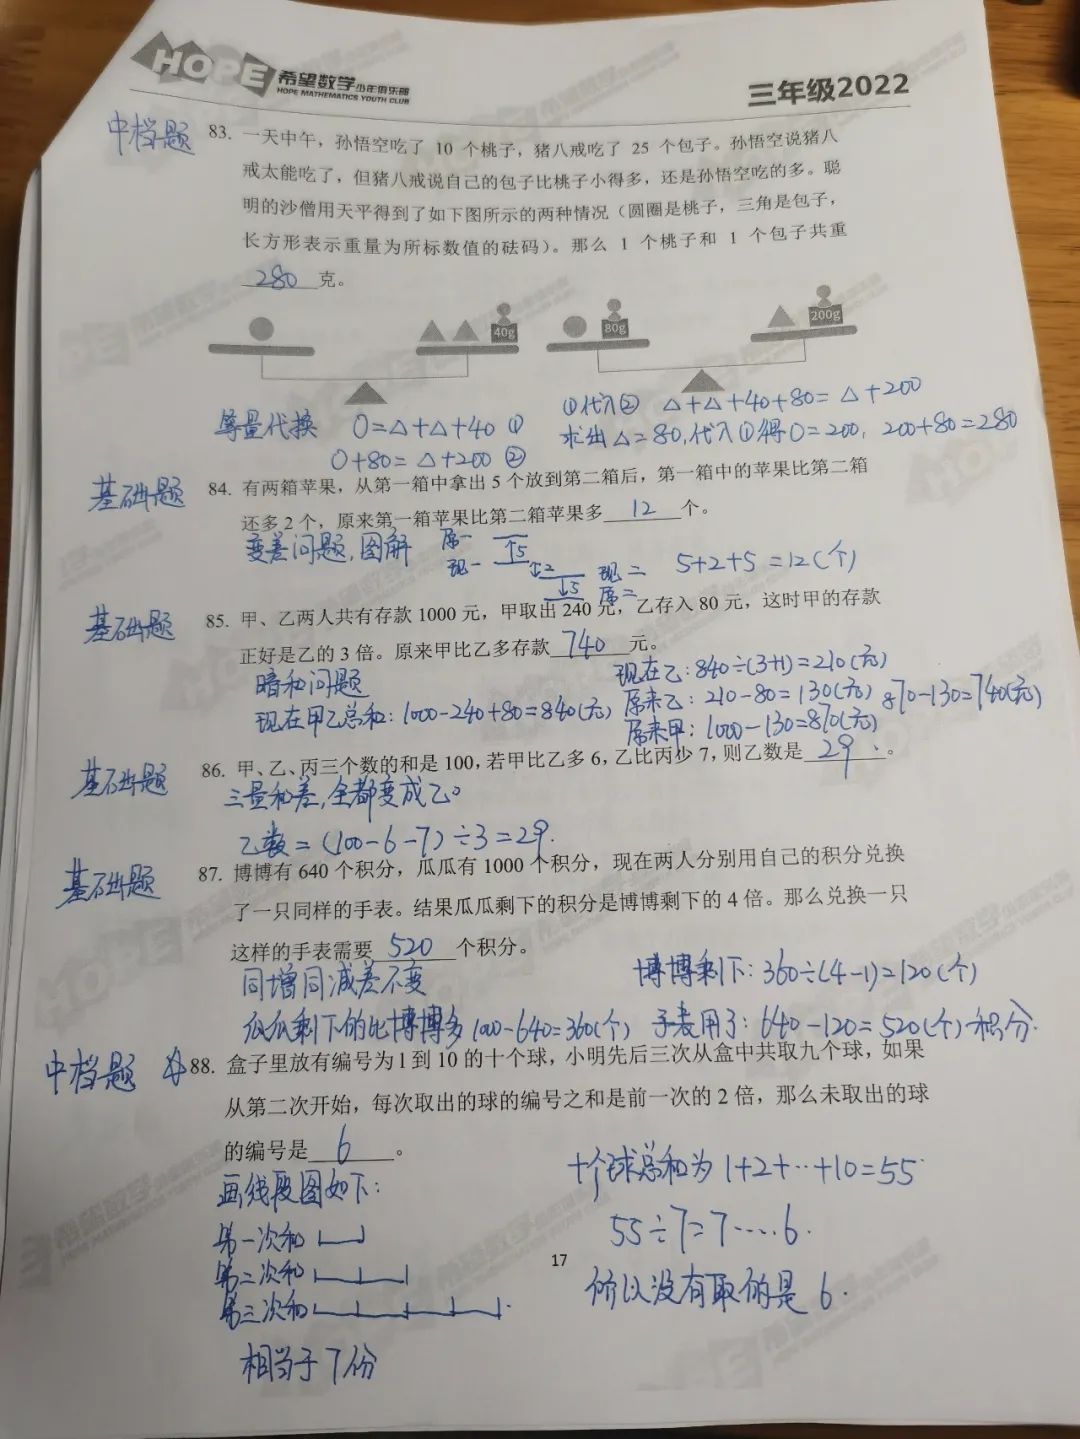 HOPE 希望数学少年俱乐部
HOPE MATHEMATICS YOUTH CLUB
三年级2022
中档题
83. 一天中午，孙悟空吃了 10 个桃子，猪八戒吃了 25 个包子。孙悟空说猪八
戒太能吃了，但猪八戒说自己的包子比桃子小得多，还是孙悟空吃的多。聪
明的沙僧用天平得到了如下图所示的两种情况（圆圈是桃子，三角是包子，
长方形表示重量为所标数值的砝码）。那么 1 个桃子和 1 个包子共重
280 克。
40g
80g
200g
等量代换 O=△+△+40 ①
O+80=△+200 ②
①代入② △+△+40+80=△+200
求出△=80,代入①得O=200, 200+80=280
基础题
84. 有两箱苹果，从第一箱中拿出 5 个放到第二箱后，第一箱中的苹果比第二箱
还多 2 个，原来第一箱苹果比第二箱苹果多 12 个。
变差问题,图解
原一
现一 ↑5
↓2 现二
↓5 原二
5+2+5=12(个)
基础题
85. 甲、乙两人共有存款 1000 元，甲取出 240 元，乙存入 80 元，这时甲的存款
正好是乙的 3 倍。原来甲比乙多存款 740 元。
暗和问题
现在甲乙总和: 1000-240+80=840(元)
现在乙: 840÷(3+1)=210(元)
原来乙: 210-80=130(元)
原来甲: 1000-130=870(元)
870-130=740(元)
基础题
86. 甲、乙、丙三个数的和是 100，若甲比乙多 6，乙比丙少 7，则乙数是 29 。
三量和差,全都变成乙。
乙数=(100-6-7)÷3=29.
基础题
87. 博博有 640 个积分，瓜瓜有 1000 个积分，现在两人分别用自己的积分兑换
了一只同样的手表。结果瓜瓜剩下的积分是博博剩下的 4 倍。那么兑换一只
这样的手表需要 520 个积分。
同增同减差不变
瓜瓜剩下的比博博多1000-640=360(个)
博博剩下: 360÷(4-1)=120(个)
手表用了: 640-120=520(个)积分.
中档题
88. 盒子里放有编号为 1 到 10 的十个球，小明先后三次从盒中共取九个球，如果
从第二次开始，每次取出的球的编号之和是前一次的 2 倍，那么未取出的球
的编号是 6 。
画线段图如下:
第一次和
第二次和
第三次和
相当于7份
十个球总和为 1+2+…+10=55
55÷7=7……6.
所以没有取的是6.
17